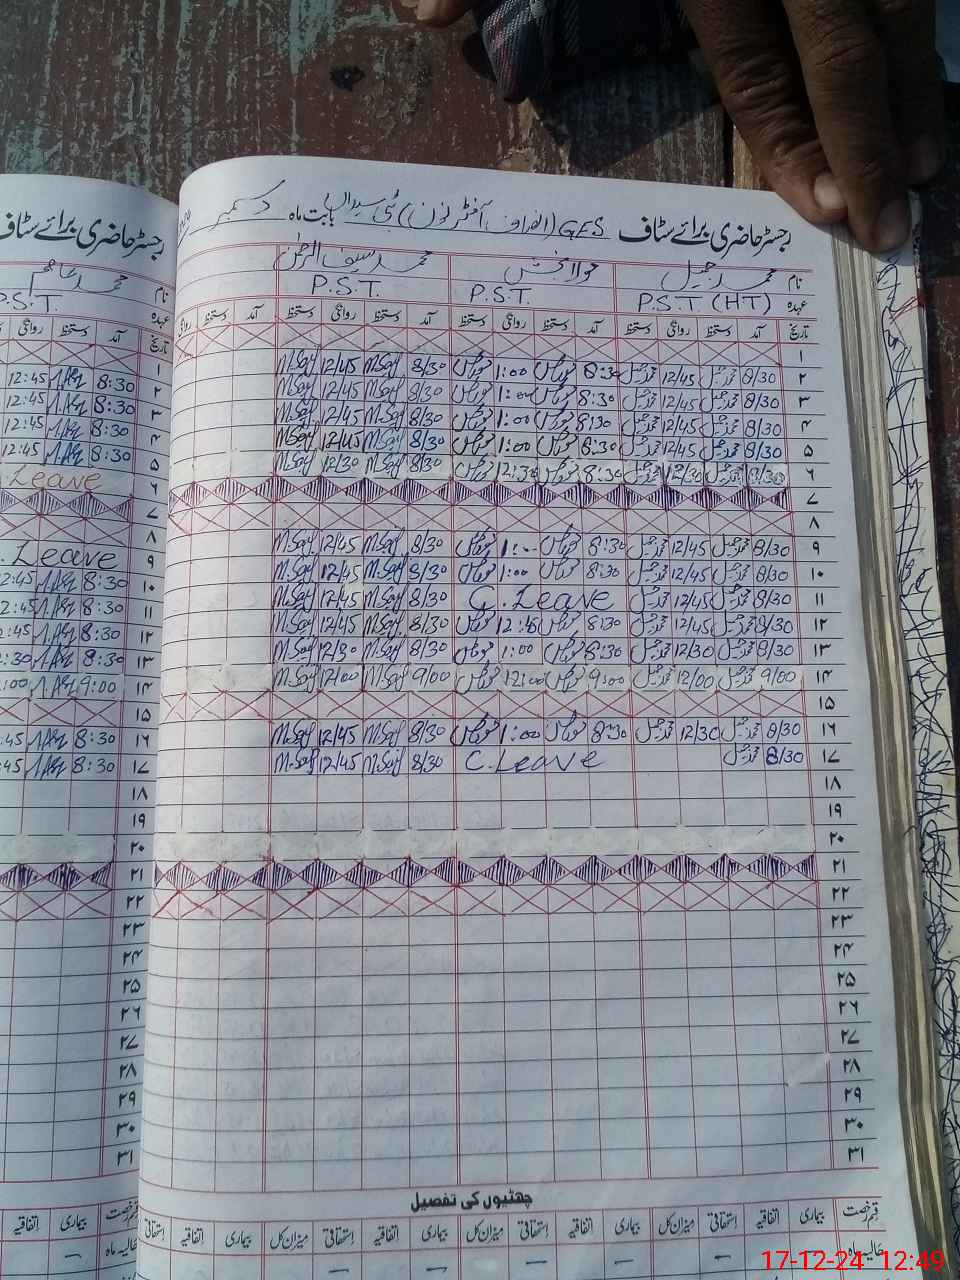 رجسٹر حاضری برائے سٹاف GES (افراف آفٹر نون) بابت ماہ دسمبر
نام محمد جمیل مولا بخش محمد سیف الرحمٰن
عہدہ P.S.T (HT) P.S.T. P.S.T.
تاریخ آمد دستخط روانگی دستخط آمد دستخط روانگی دستخط آمد دستخط روانگی دستخط آمد دستخط روانگی
۱
۲ 8/30 محمد جمیل 12/45 محمد جمیل 8:30 مولا بخش 1:00 مولا بخش 8/30 M.Saif 12/45 M.Saif
۳ 8/30 محمد جمیل 12/45 محمد جمیل 8:30 مولا بخش 1:00 مولا بخش 8/30 M.Saif 12/45 M.Saif
۴ 8/30 محمد جمیل 12/45 محمد جمیل 8:30 مولا بخش 1:00 مولا بخش 8/30 M.Saif 12/45 M.Saif
۵ 8/30 محمد جمیل 12/45 محمد جمیل 8:30 مولا بخش 1:00 مولا بخش 8/30 M.Saif 12/45 M.Saif
۶ 8/30 محمد جمیل 12/30 محمد جمیل 8:30 مولا بخش 12:30 مولا بخش 8/30 M.Saif 12/30 M.Saif
۷
۸
۹ 8/30 محمد جمیل 12/45 محمد جمیل 8:30 مولا بخش 1:00 مولا بخش 8/30 M.Saif 12/45 M.Saif
۱۰ 8/30 محمد جمیل 12/45 محمد جمیل 8:30 مولا بخش 1:00 مولا بخش 8/30 M.Saif 12/45 M.Saif
۱۱ 8/30 محمد جمیل 12/45 محمد جمیل C.Leave 8/30 M.Saif 12/45 M.Saif
۱۲ 8/30 محمد جمیل 12/45 محمد جمیل 8:30 مولا بخش 12:45 مولا بخش 8/30 M.Saif 12/45 M.Saif
۱۳ 8/30 محمد جمیل 12/30 محمد جمیل 8:30 مولا بخش 1:00 مولا بخش 8/30 M.Saif 12/30 M.Saif
۱۴ 9/00 محمد جمیل 12/00 محمد جمیل 9:00 مولا بخش 12:00 مولا بخش 9/00 M.Saif 12/00 M.Saif
۱۵
۱۶ 8/30 محمد جمیل 12/30 محمد جمیل 8:30 مولا بخش 1:00 مولا بخش 8/30 M.Saif 12/45 M.Saif
۱۷ 8/30 محمد جمیل C.Leave 8/30 M.Saif 12/45 M.Saif
۱۸
۱۹
۲۰
۲۱
۲۲
۲۳
۲۴
۲۵
۲۶
۲۷
۲۸
۲۹
۳۰
۳۱
چھٹیوں کی تفصیل
قسم رخصت بیماری اتفاقیہ استحقاقی میزان کل بیماری اتفاقیہ استحقاقی میزان کل بیماری اتفاقیہ استحقاقی میزان کل بیماری اتفاقیہ استحقاقی
حالیہ ماہ
رجسٹر حاضری برائے سٹاف
نام محمد عاصم
عہدہ P.S.T.
تاریخ آمد دستخط روانگی
۱
۲ 8:30 12:45
۳ 8:30 12:45
۴ 8:30 12:45
۵ 8:30 12:45
۶ Leave
۷
۸
۹ . Leave
۱۰ 8:30 2:45
۱۱ 8:30 2:45
۱۲ 8:30 2:45
۱۳ 8:30 2:30
۱۴ 9:00 :00
۱۵
۱۶ 8:30 .45
۱۷ 8:30 45
۱۸
۱۹
۲۰
۲۱
۲۲
۲۳
۲۴
۲۵
۲۶
۲۷
۲۸
۲۹
۳۰
۳۱
قسم رخصت بیماری اتفاقیہ
حالیہ ماہ
17-12-24 12:49